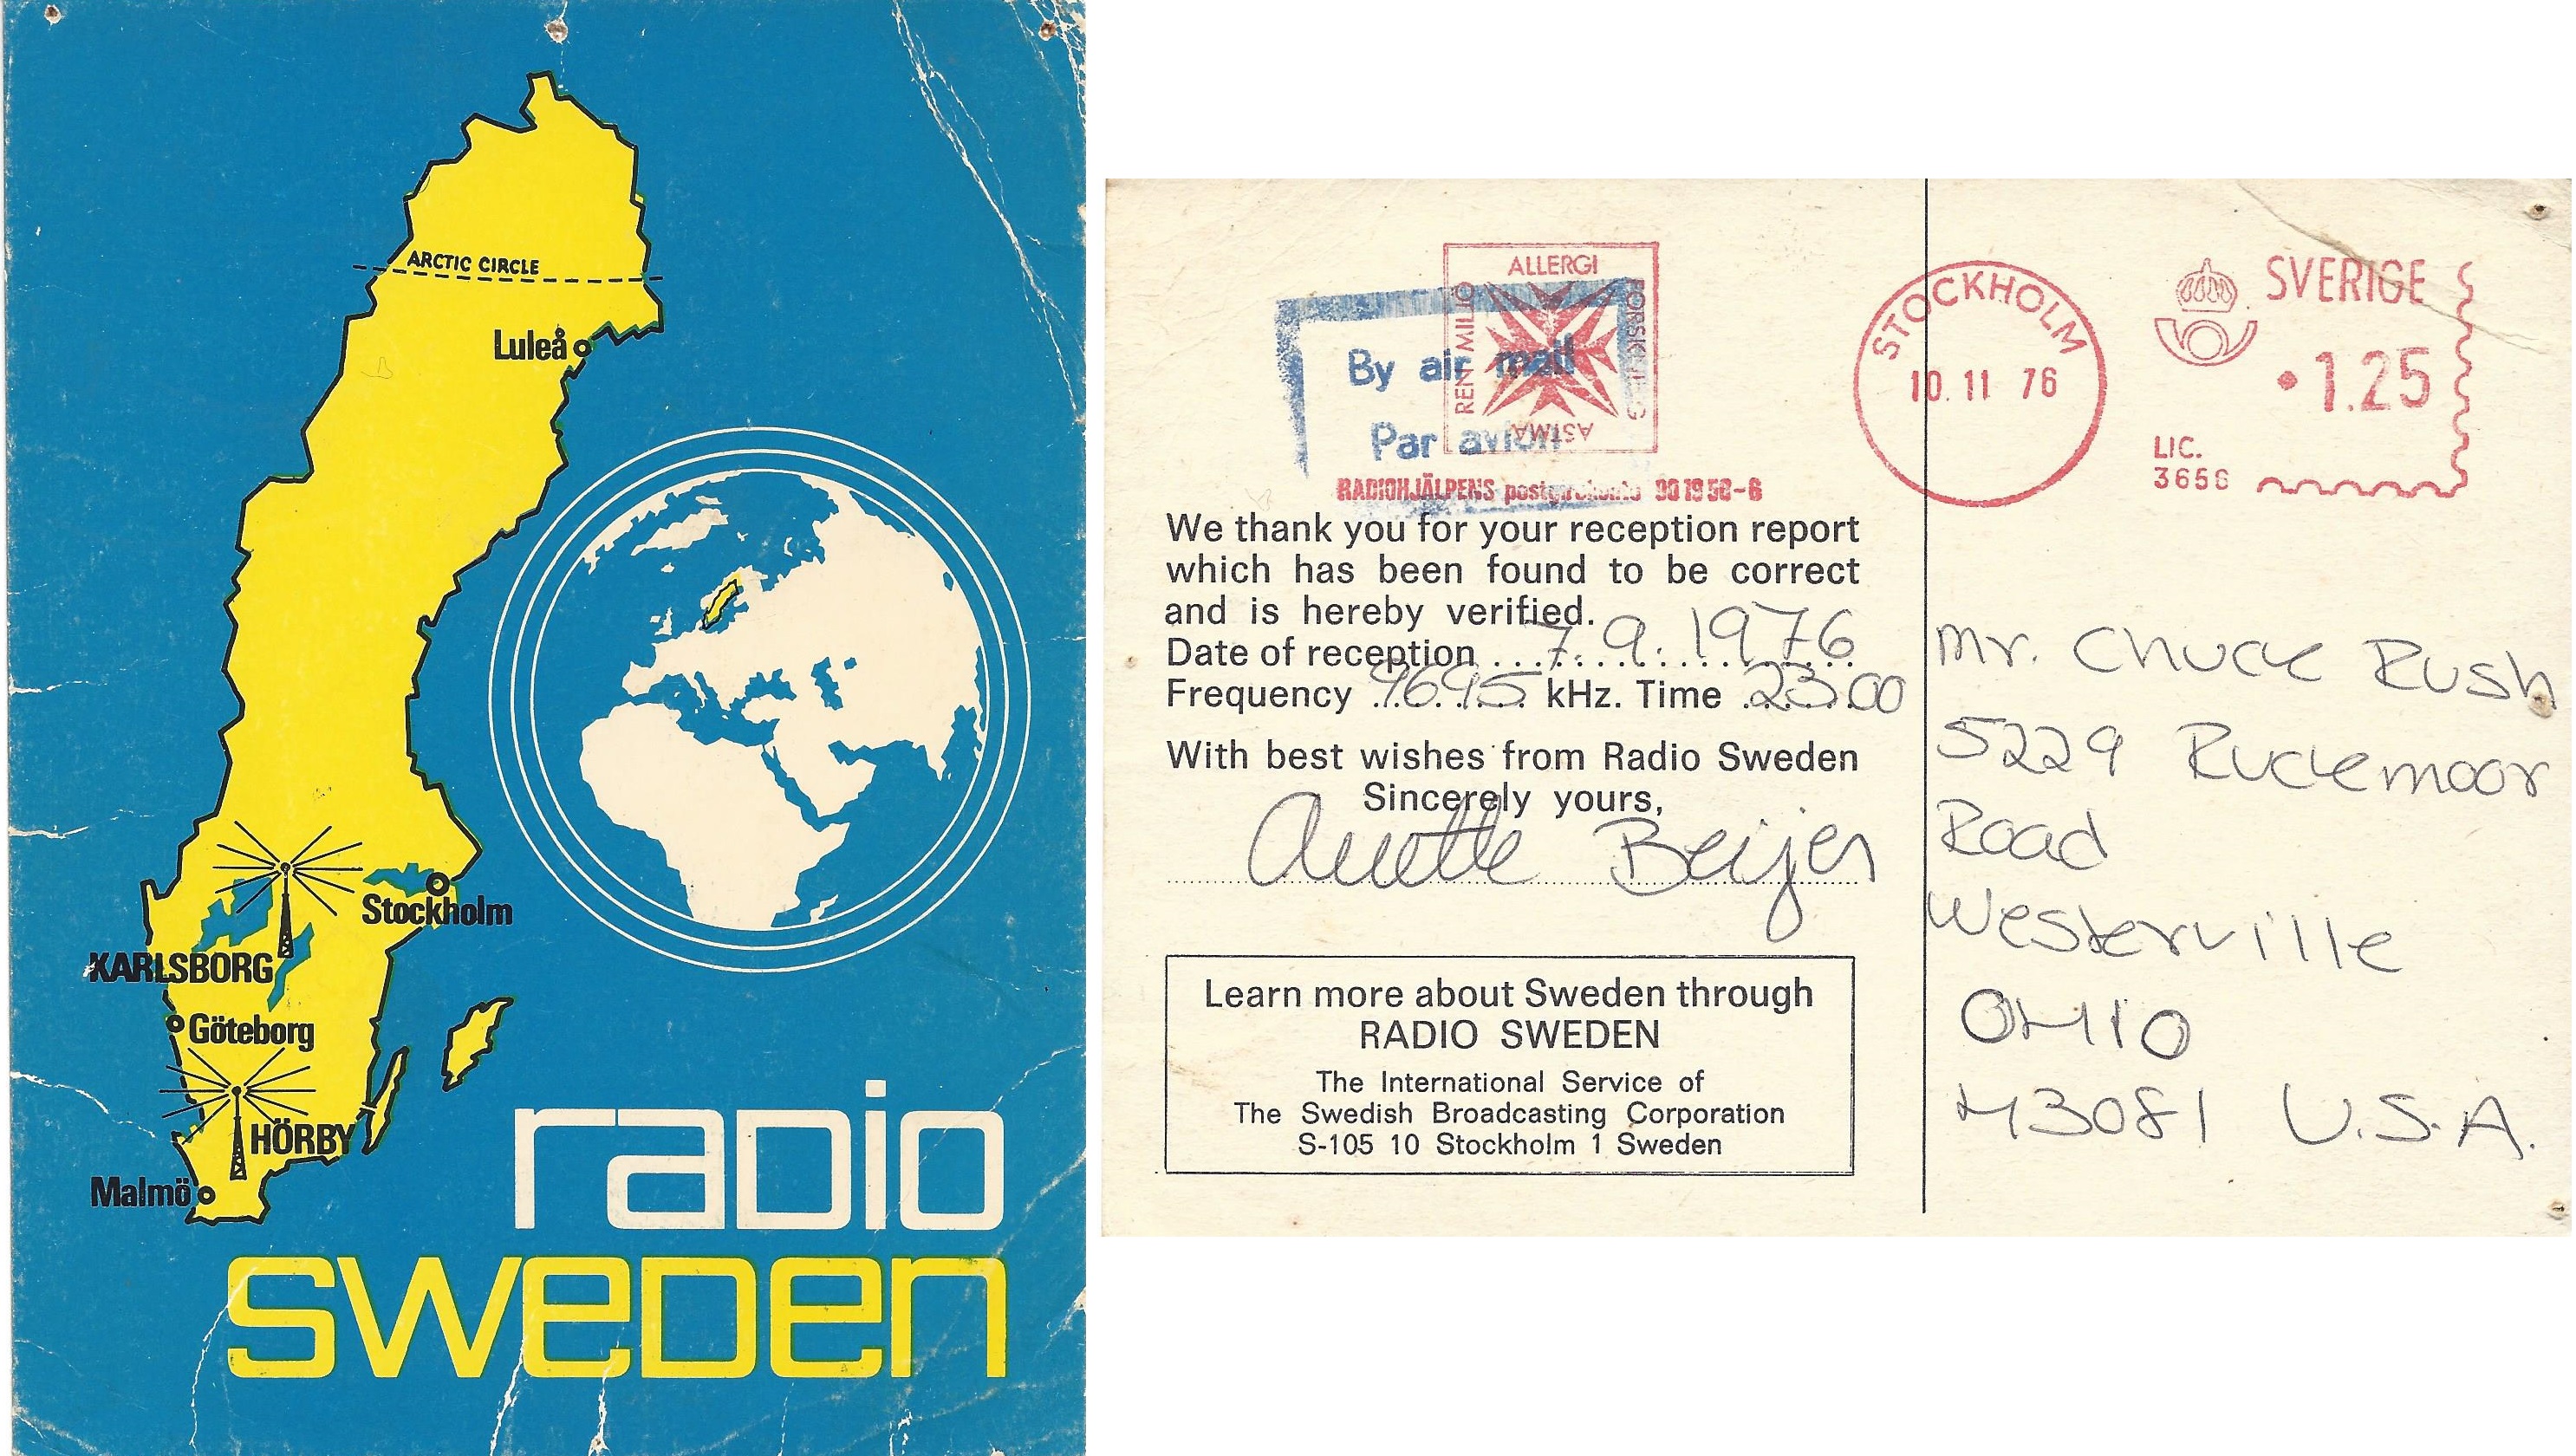 ARCTIC CIRCLE
Luleå
Stockholm
KARLSBORG
Göteborg
HÖRBY
Malmö
radio
sweden
ALLERGI
REN MILJÖ
ASTMA
By air mail
Par avion
RADIOHJÄLPENS postgirokonto 901950-6
STOCKHOLM
10.11 76
SVERIGE
1.25
LIC.
3656
We thank you for your reception report
which has been found to be correct
and is hereby verified.
Date of reception 7.9.1976
Frequency 9695 kHz. Time 23.00
With best wishes from Radio Sweden
Sincerely yours,
Anette Beijer
Learn more about Sweden through
RADIO SWEDEN
The International Service of
The Swedish Broadcasting Corporation
S-105 10 Stockholm 1 Sweden
Mr. Chuck Rush
5229 Ruckmoor
Road
Westerville
OHIO
43081 U.S.A.